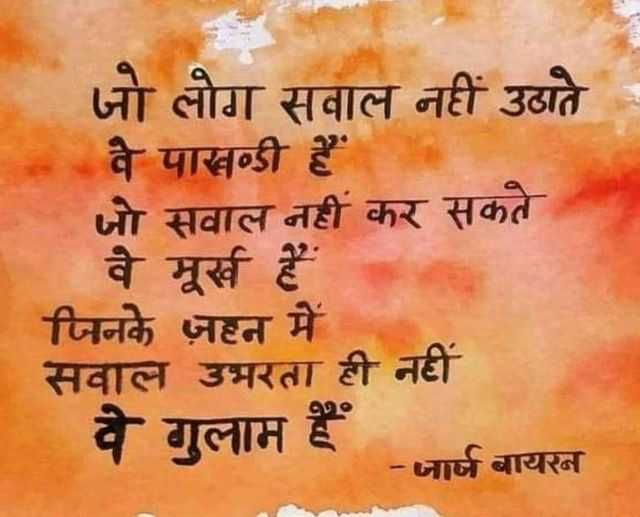 जो लोग सवाल नहीं उठाते
वे पाखण्डी हैं
जो सवाल नहीं कर सकते
वे मूर्ख हैं
जिनके ज़हन में
सवाल उभरता ही नहीं
वे गुलाम हैं
- जार्ज बायरन